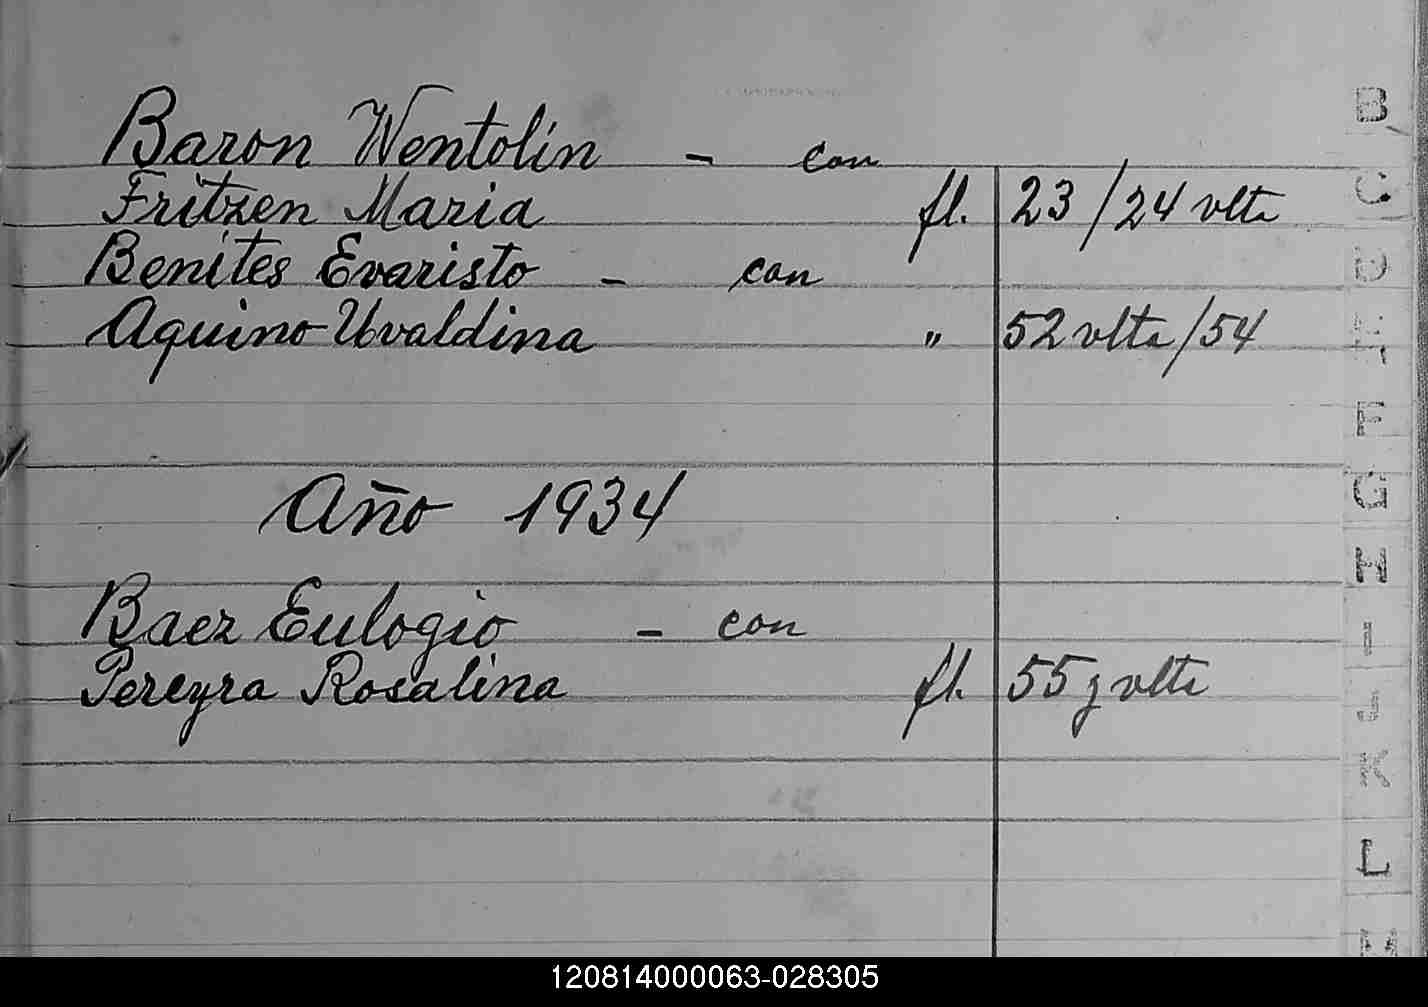 Baron Wentolin - con
Fritzen Maria fl. 23/24 vlta
Benites Evaristo - con
Aquino Uvaldina " 52 vlta/54
Año 1934
Baez Eulogio - con
Pereyra Rosalina fl. 55 y vlta
B
C
D
E
F
G
H
I
J
K
L
M
120814000063-028305